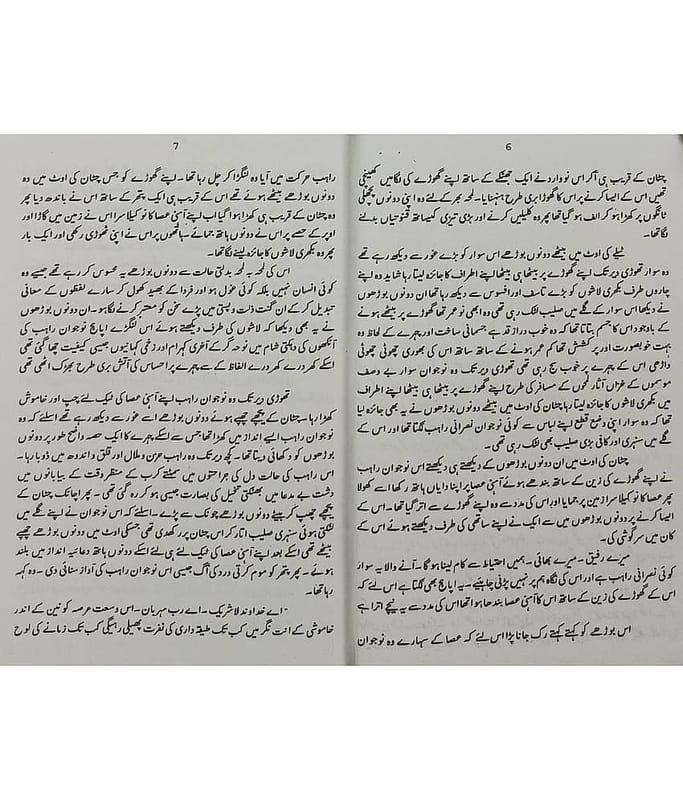 6
چٹان کے قریب ہی آ کر اس نو وارد نے ایک جھٹکے کے ساتھ اپنے گھوڑے کی لگامیں کھینچی
تھیں اس کے ایسا کرنے پر اس کا گھوڑا بری طرح ہنہنایا۔ لمحہ بھر کے لئے وہ اپنی دونوں پچھلی
ٹانگوں پر کھڑا ہو کر الف ہو گیا تھا پھر وہ کلیلیں کرنے اور بڑی تیزی کیساتھ قنوتیاں بدلنے
لگا تھا۔
ٹیلے کی اوٹ میں بیٹھے دونوں بوڑھے اس سوار کو بڑے غور سے دیکھ رہے تھے
وہ سوار تھوڑی دیر تک اپنے گھوڑے پر بیٹھا ہی بیٹھا اپنے اطراف کا جائزہ لیتا رہا شاید وہ اپنے
چاروں طرف بکھری لاشوں کو بڑے تاسف اور افسوس سے دیکھ رہا تھا ان دونوں بوڑھوں
نے دیکھا اس سوار کے گلے میں صلیب لٹک رہی تھی وہ ابھی نو عمر تھا گھوڑے پر بیٹھے ہونے
کے باوجود اس کا جسم بتاتا تھا کہ وہ خوب دراز قد ہے جسمانی ساخت اور چہرے کے لحاظ وہ
بہت خوبصورت اور پرکشش تھا کم عمر ہونے کے ساتھ ساتھ اس کی بھوری چھوٹی چھوٹی
داڑھی اس کے چہرے پر خوب سج رہی تھی تھوڑی دیر تک وہ نوجوان سوار بے وصف
موسموں کے خزاں آثار لمحوں کے مسافر کی طرح اپنے گھوڑے پر بیٹھا ہی بیٹھا اپنے اطراف
میں بکھری لاشوں کا جائزہ لیتا رہا چٹان کی اوٹ میں بیٹھے دونوں بوڑھوں نے یہ بھی جائزہ لیا
تھا کہ وہ سوار اپنی وضع قطع اپنے لباس سے کوئی نوجوان نصرانی راہب لگتا تھا اور اس کے
گلے میں سنہری اور کافی بڑی صلیب بھی لٹک رہی تھی۔
چٹان کی اوٹ میں ان دونوں بوڑھوں کے دیکھتے ہی دیکھتے اس نوجوان راہب
نے اپنے گھوڑے کی زین کے ساتھ بندھے ہوئے آہنی عصا پر اپنا دایاں ہاتھ رکھا اسے کھولا
پھر عصا کا نوکیلا سرا زمین پر جمایا اور اس کی مدد سے وہ اپنے گھوڑے سے اتر گیا تھا۔ اس کے
ایسا کرنے پر دونوں بوڑھوں میں سے ایک نے اپنے ساتھی کی طرف دیکھتے ہوئے اس کے
کان میں سرگوشی کی۔
میرے رفیق۔ میرے بھائی۔ ہمیں احتیاط سے کام لینا ہو گا۔ آنے والا یہ سوار
کوئی نصرانی راہب ہے اور اس کی نگاہ ہم پر نہیں پڑنی چاہیئے۔ یہ اپاہج بھی لگتا ہے اس لئے کہ
اس کے گھوڑے کی زین کے ساتھ اس کا آہنی عصا بندھا ہوا تھا اس کی مدد سے یہ نیچے اترا ہے
اس بوڑھے کو کہتے کہتے رک جانا پڑا اس لئے کہ عصا کے سہارے وہ نوجوان
7
راہب حرکت میں آیا وہ لنگڑا کر چل رہا تھا۔ اپنے گھوڑے کو جس چٹان کی اوٹ میں وہ
دونوں بوڑھے بیٹھے ہوئے تھے اس کے قریب ہی ایک پتھر کے ساتھ اس نے باندھ دیا پھر
وہ چٹان کے قریب ہی کھڑا ہو گیا اب اپنے آہنی عصا کا نوکیلا سرا اس نے زمین میں گاڑا اور
اوپر کے حصے پر اس نے دونوں ہاتھ جمائے ہاتھوں پر اس نے اپنی ٹھوڑی رکھی اور ایک بار
پھر وہ بکھری لاشوں کا جائزہ لینے لگا تھا۔
اس کی لمحہ بہ لمحہ بدلتی حالت سے دونوں بوڑھے یہ محسوس کر رہے تھے جیسے وہ
کوئی انسان نہیں بلکہ کوئی غول ہو اور فردا کے بھید کھول کر سارے لفظوں کے معانی
تبدیل کر کے ان گنت ذلت و پستی میں پڑے سخن کو معتبر کرنے لگا ہو۔ ان دونوں بوڑھوں
نے یہ بھی دیکھا کہ لاشوں کی طرف دیکھتے ہوئے اس لنگڑے اپاہج نوجوان راہب کی
آنکھوں کی دہکتی شام میں نوحہ گر کے آخری کہرام اور زخمی کہانیوں جیسی کیفیت چھا گئی تھی
اسکے کھردرے کھردرے الفاظ کے سے چہرے پر احساس کی آتش بری طرح بھڑک اٹھی تھی
تھوڑی دیر تک وہ نوجوان راہب اپنے آہنی عصا کی ٹیک لئے چپ اور خاموش
کھڑا رہا۔ چٹان کے پیچھے چھپے ہوئے دونوں بوڑھے اسے غور سے دیکھ رہے تھے اسلئے کہ وہ
نوجوان راہب ایسے انداز میں کھڑا تھا جس سے اسکے چہرے کا ایک حصہ واضح طور پر دونوں
بوڑھوں کو دکھائی دیتا تھا۔ کچھ دیر تک وہ راہب حزن و ملال اور قلق و اندوہ میں ڈوبا رہا۔
اس راہب کی حالت دل کی جراحتوں میں سمٹتے کرب کے منظر وقت کے بیابانوں میں
دشت بے مدعا میں بھٹکتی تخیل کی بصارت جیسی ہو کر رہ گئی تھی۔ پھر اچانک چٹان کے
پیچھے چھپ کر بیٹھے دونوں بوڑھے چونک سے پڑے۔ اسلئے کہ اس نوجوان نے اپنے گلے میں
لٹکتی ہوئی سنہری صلیب اتار کر اس چٹان پر رکھ دی تھی جسکی اوٹ میں وہ دونوں بوڑھے چھپے
بیٹھے تھے اسکے بعد اپنے آہنی عصا کی ٹیک لئے ہی لئے اسکے دونوں ہاتھ دعائیہ انداز میں بلند
ہوئے۔ پھر پتھر کو موم کرتی درد کی آگ جیسی اس نوجوان راہب کی آواز سنائی دی۔ وہ کہہ
رہا تھا۔
۔ اے خداوند لا شریک۔ اے رب مہربان۔ اس وسعت عرصہ کونین کے اندر
خاموشی کے انت نگر میں کب تک طبقہ داری کی نفرت پھیلی رہیگی کب تک زمانے کی لوح